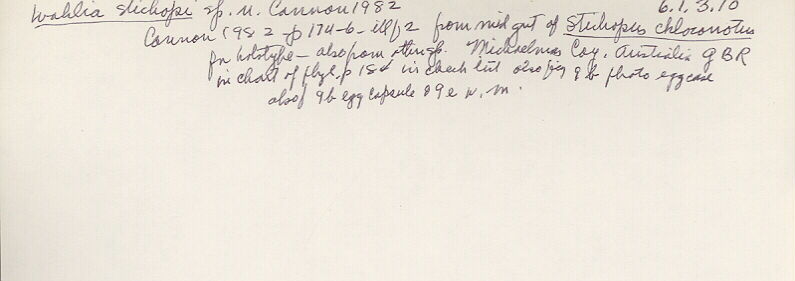 Wahlia stichopi sp. n. Cannon 1982 6.1.3.10
Cannon 1982 p 174-6 - ill f 2 from mid gut of Stichopus chloronotus
for holotype - also from other sp. Michaelmas Cay, Australia GBR
in chart of phyl. p 184 in check list also fig 9b photo egg case
also f 9b egg capsule 89e n. m.